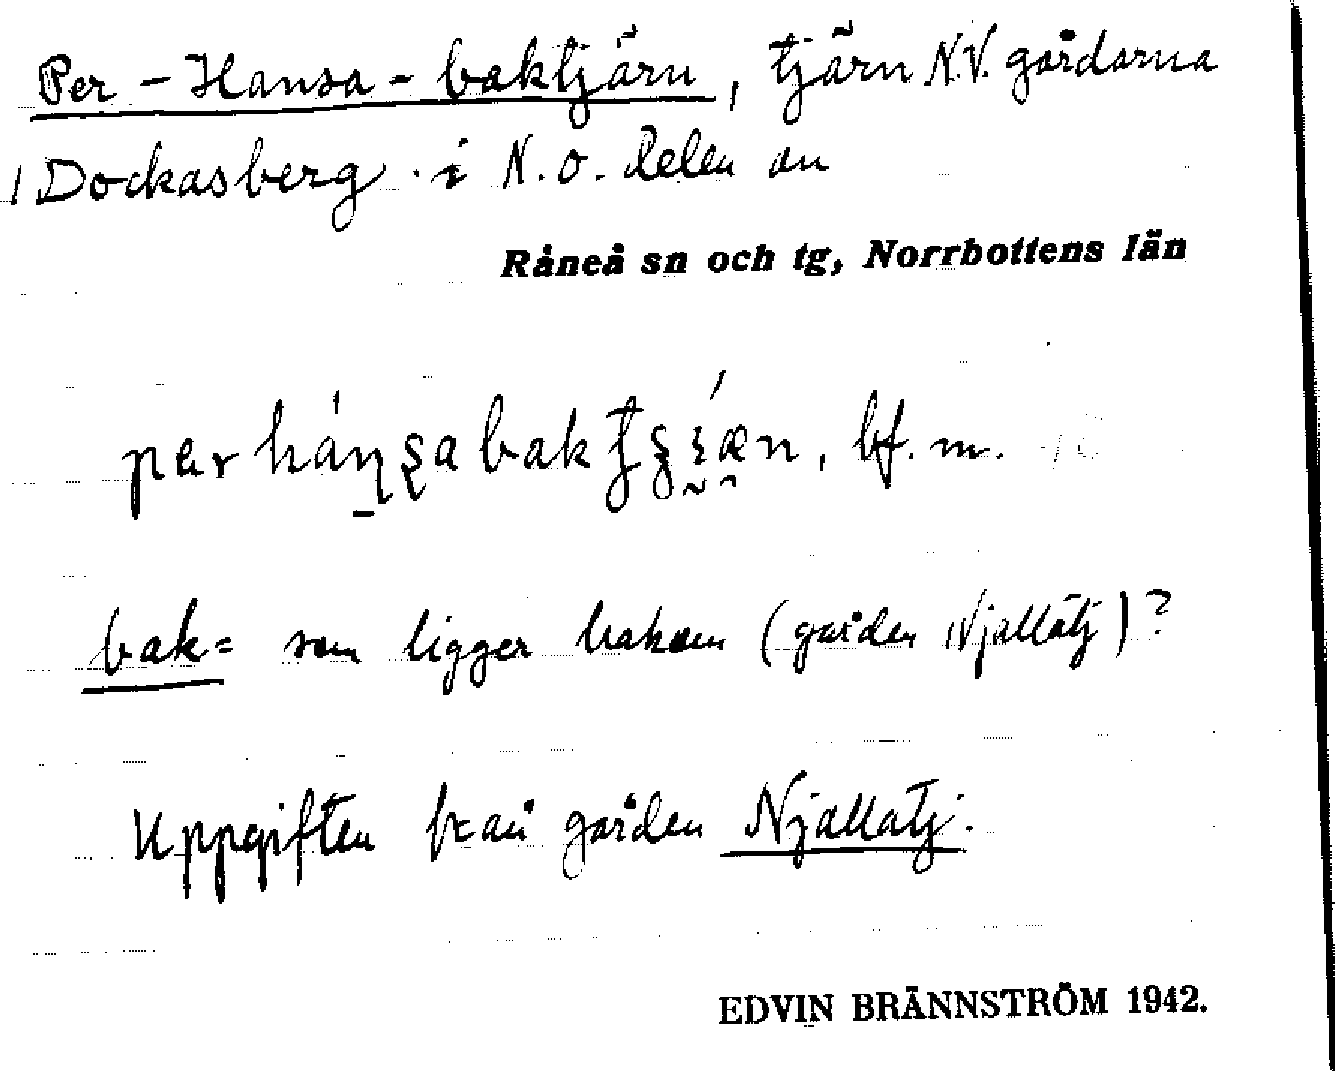 Per-Hansa-baktjärn, tjärn N.V. gårdarna
i Dockasberg i N.O. delen av
Råneå sn och tg, Norrbottens län
bf. m.
bak= som ligger bakom (gården Njallatj)?
Uppgiften från gården Njallatj.
EDVIN BRÄNNSTRÖM 1942.